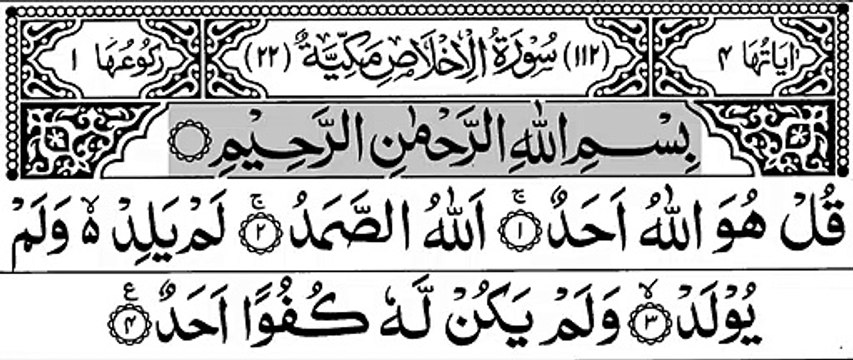 اٰیَاتُهَا ۴ (۱۱۲) سُوْرَةُ الْاِخْلَاصِ مَكِّيَّةٌ (۲۲) رُكُوْعُهَا ۱
بِسْمِ اللّٰهِ الرَّحْمٰنِ الرَّحِيْمِ ۝
قُلْ هُوَ اللّٰهُ اَحَدٌ ۚ‏﴿۱﴾ اَللّٰهُ الصَّمَدُ ۚ‏﴿۲﴾ لَمْ يَلِدْ ۙ۬ وَلَمْ
يُوْلَدْ ۙ‏﴿۳﴾ وَلَمْ يَكُنْ لَّهٗ كُفُوًا اَحَدٌ ﴿۴﴾ ع